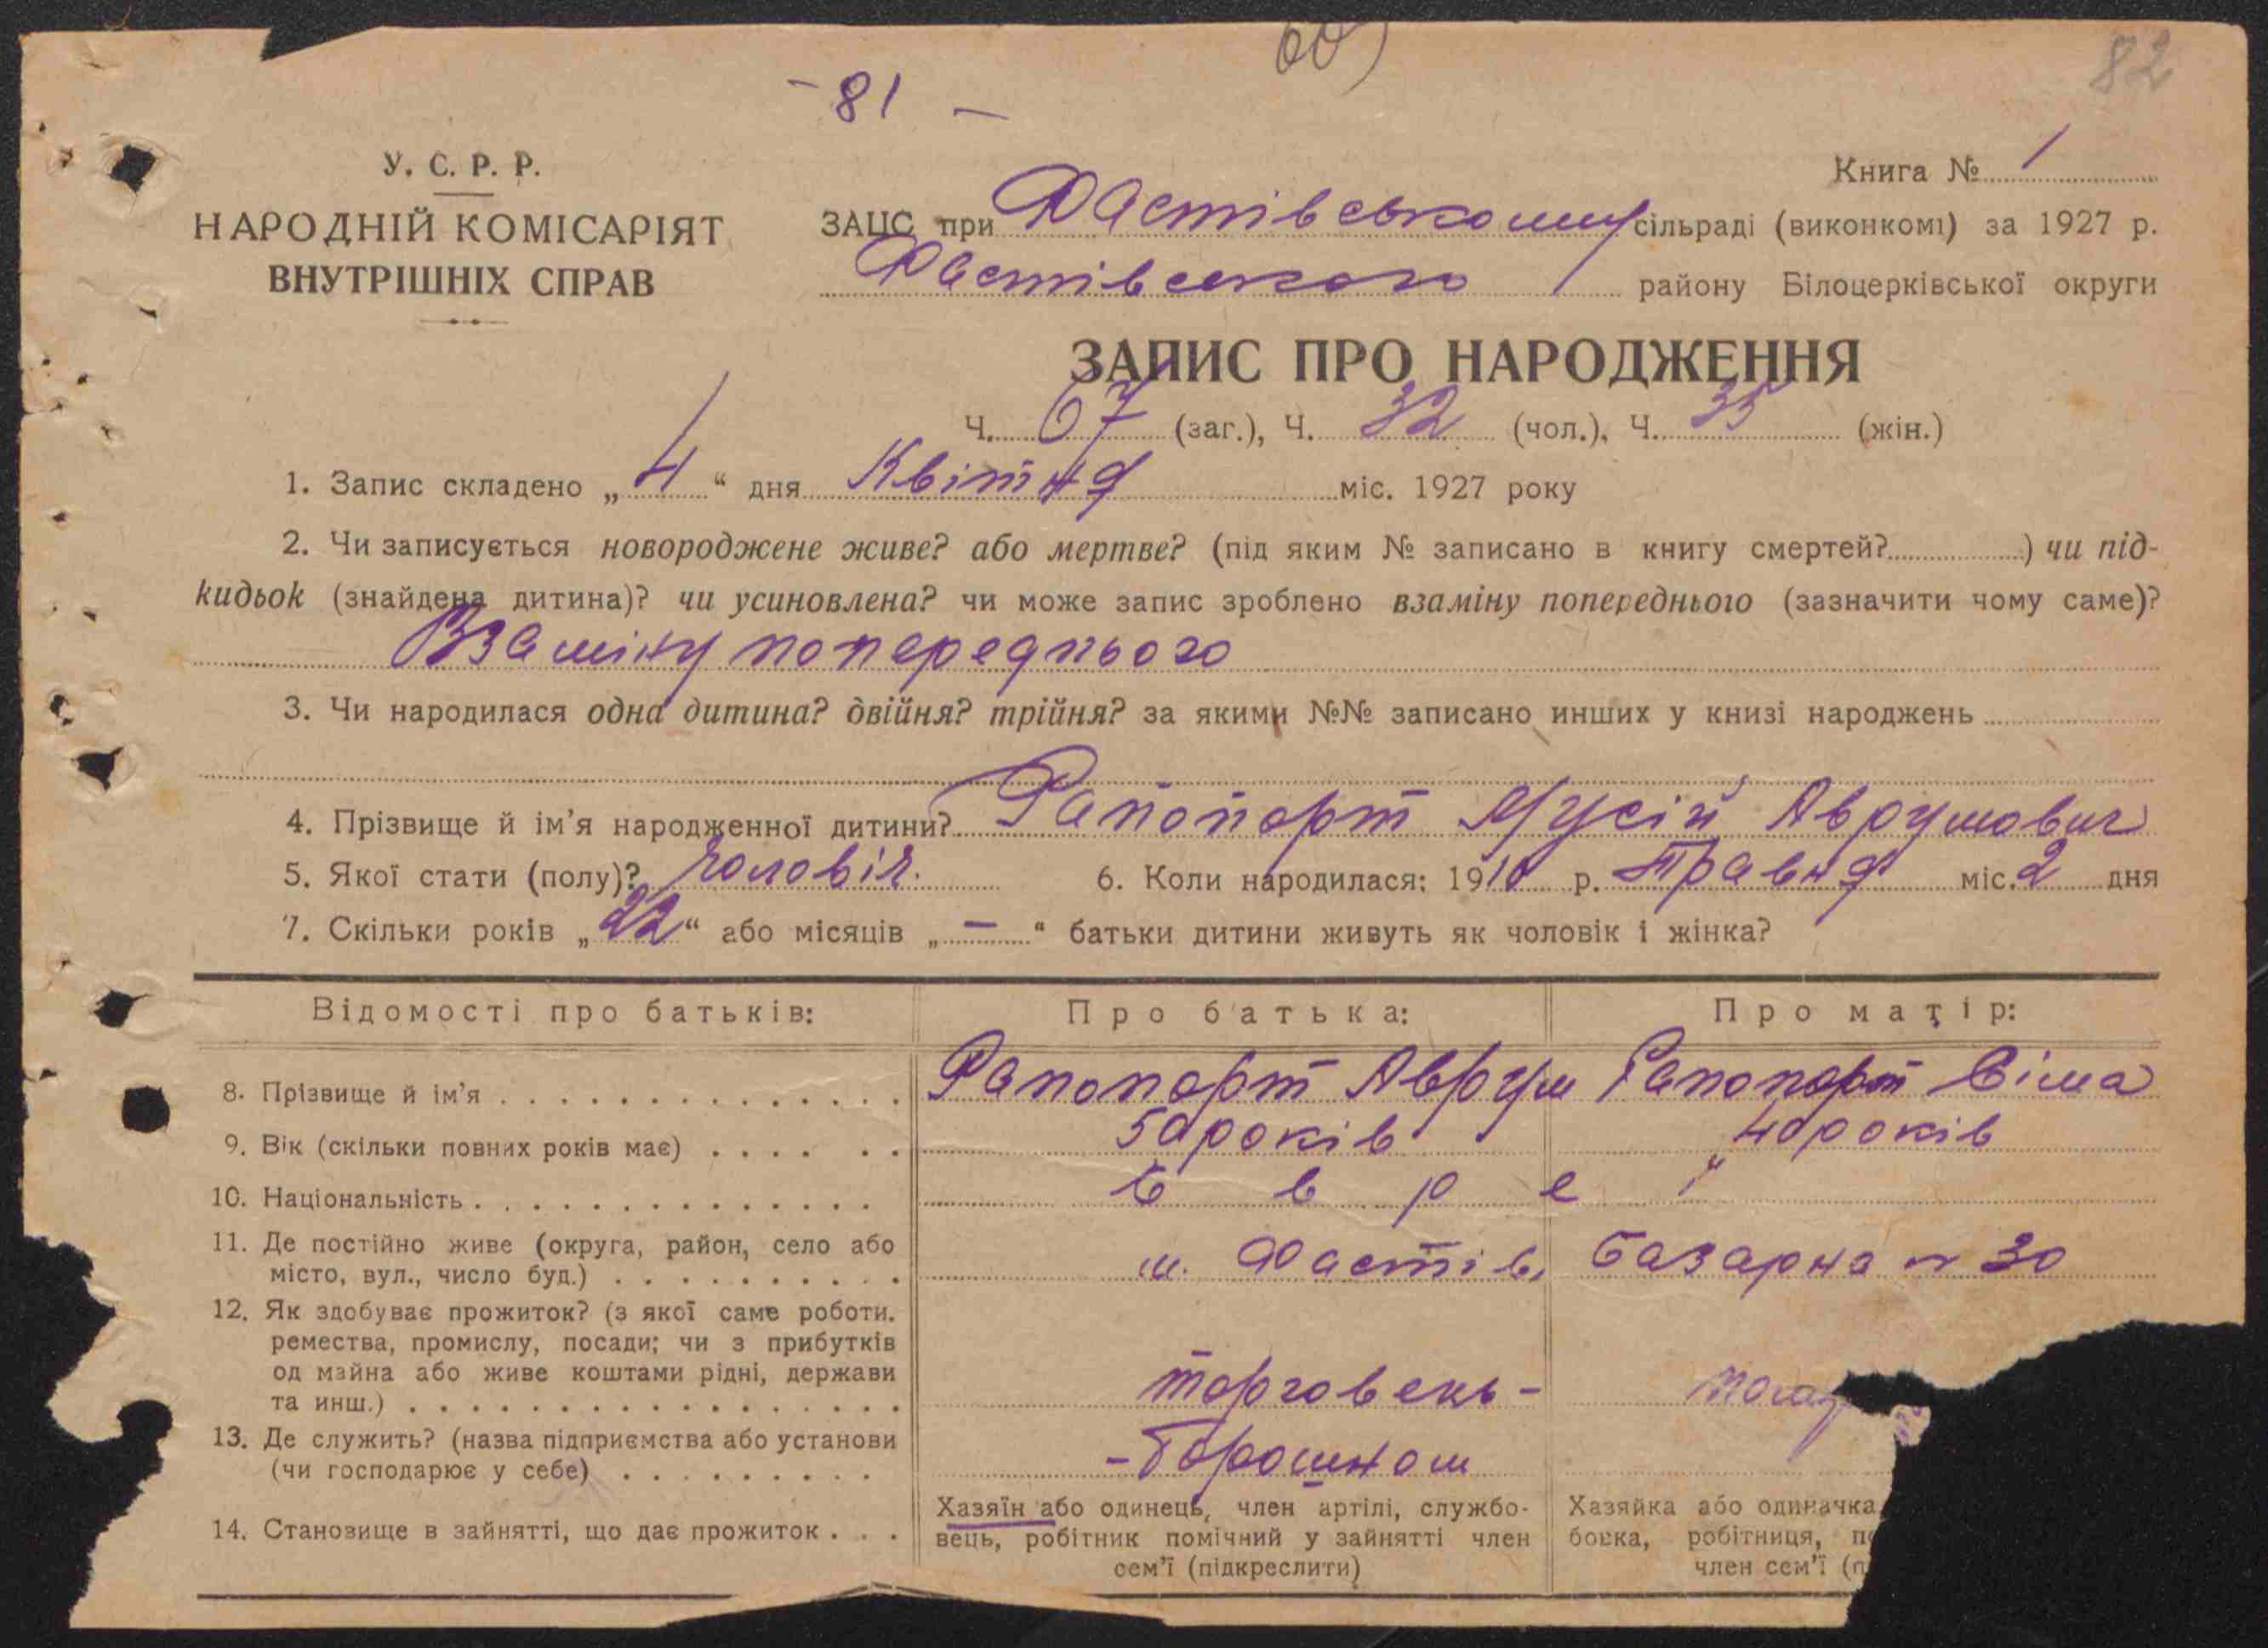 60)
82
- 81 -
У. С. Р. Р.
НАРОДНІЙ КОМІСАРІЯТ
ВНУТРІШНІХ СПРАВ
Книга № 1
ЗАЦС при Фастівському сільраді (виконкомі) за 1927 р.
Фастівського району Білоцерківської округи
ЗАПИС ПРО НАРОДЖЕННЯ
Ч. 67 (заг.), Ч. 32 (чол.), Ч. 35 (жін.)
1. Запис складено „ 4 “ дня Квітня міс. 1927 року
2. Чи записується новороджене живе? або мертве? (під яким № записано в книгу смертей? ) чи під-
кидьок (знайдена дитина)? чи усиновлена? чи може запис зроблено взаміну попереднього (зазначити чому саме)?
Взаміну попереднього
3. Чи народилася одна дитина? двійня? трійня? за якими №№ записано инших у книзі народжень
4. Прізвище й ім’я народженної дитини? Рапопорт Мусій Аврумович
5. Якої стати (полу)? чоловіч. 6. Коли народилася: 1910 р. Травня міс. 2 дня
7. Скільки років „ 22 “ або місяців „ — “ батьки дитини живуть як чоловік і жінка?
Відомості про батьків: Про батька: Про матір:
8. Прізвище й ім’я Рапопорт Аврум Рапопорт Сіма
9. Вік (скільки повних років має) 50 років 40 років
10. Національність Євреї
11. Де постійно живе (округа, район, село або
місто, вул., число буд.) м. Фастів, Базарна № 30
12. Як здобуває прожиток? (з якої саме роботи.
ремества, промислу, посади; чи з прибутків
од майна або живе коштами рідні, держави
та инш.) торговець -
13. Де служить? (назва підприємства або установи
(чи господарює у себе) - борошном
14. Становище в зайнятті, що дає прожиток
Хазяїн або одинець, член артілі, службо-
вець, робітник помічний у зайнятті член
сем’ї (підкреслити)
Хазяйка або одиначка
бовка, робітниця,
член сем’ї